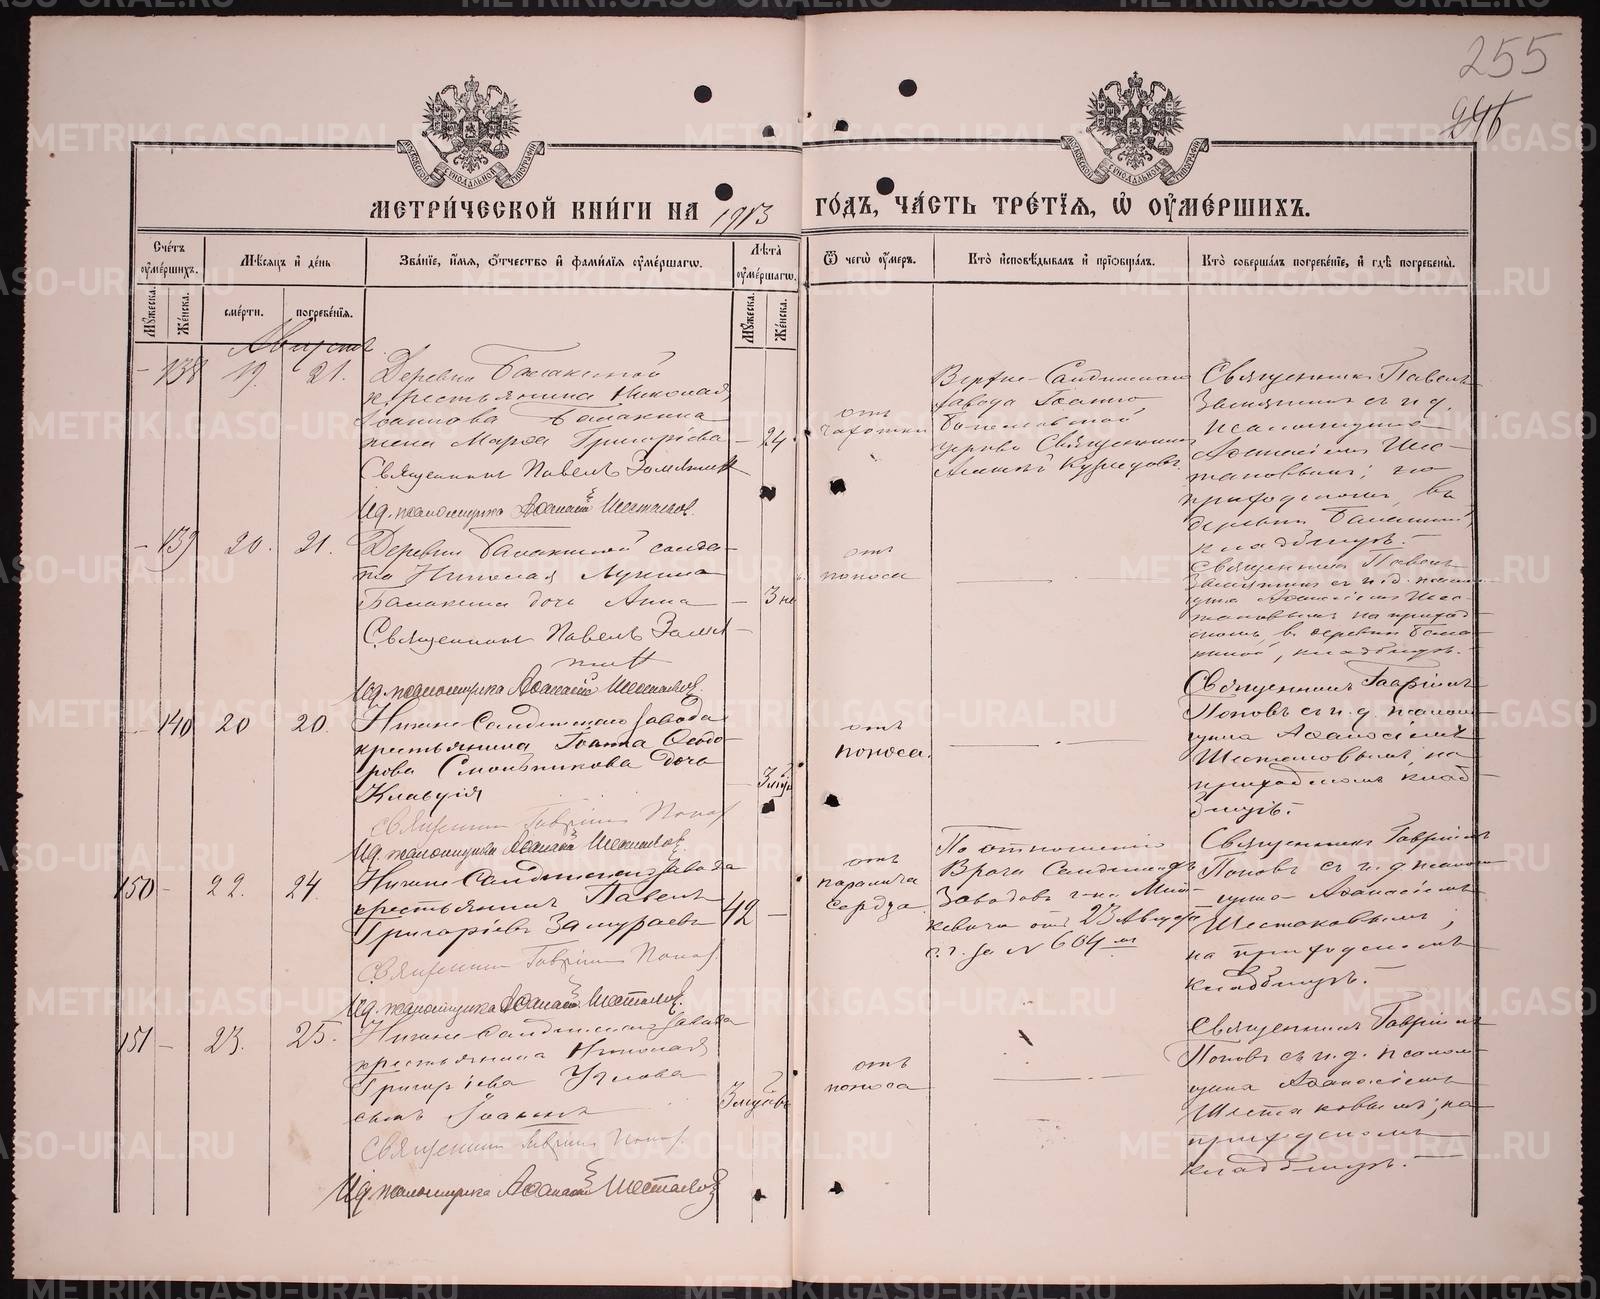 255
246
МЕТРИ́ЧЕСКОЙ КНИ́ГИ НА 1913 ГО́ДЪ, ЧА́СТЬ ТРЕ́ТІѦ, Ѡ ОУМЕ́РШИХЪ.
Сче́тъ оумє́ршихъ.
Мѣ́сѧцъ и де́нь
Зва́нїе, и́мѧ, о́тчество и фами́лїѧ оуме́ршагѡ.
Лѣта̀ оуме́ршагѡ.
Ѿ чегѡ̀ оу́меръ.
Кто̀ исповѣ́дывалъ и прїобща́лъ.
Кто̀ соверша́лъ погребе́нїе, и гдѣ̀ погребены̀.
Мꙋ́жеска.
Же́нска.
сме́рти.
погребе́нїѧ.
Мꙋ́жеска.
Же́нска.
Августъ
- 138 19. 21.
Деревни Балакиной
крестьянина Николая
Іоаннова Балакина
жена Марфа Григоріева
- 24
Священникъ Павелъ
И.д. псаломщика Афанасій Шестаковъ.
отъ
чахотки
Верхне-Салдинскаго
завода Іоанно
Богословской
церкви Священникъ
Священникъ Павелъ
съ и. д.
псаломщика
Афанасіемъ Шес-
таковымъ; на
приходскомъ въ
деревни Балакиной
кладбищѣ.
- 139 20. 21.
Деревни Балакиной солда-
та Николая Лукина
Балакина дочь Анна
- 3 не
Священникъ Павелъ
И.д. псаломщика Афанасій Шестаковъ.
отъ
поноса
Священникъ Павелъ
съ и. д. псалом-
щика Афанасіемъ Шес-
таковымъ на приход-
скомъ, въ деревни Бала-
киной, кладбищѣ.
- 140 20 20.
Нижне Салдинскаго завода
крестьянина Іоанна Ѳеодо-
рова дочь
Клавдія
Священникъ Гавріилъ Поповъ
И.д. псаломщика Афанасій Шестаковъ.
отъ
поноса.
Священникъ Гавріилъ
Поповъ съ и. д. псалом-
щика Афанасіемъ
Шестаковымъ, на
приходскомъ клад-
бищѣ.
150 - 22. 24.
Нижне Салдинскаго завода
крестьянинъ Павелъ
Григоріевъ Замураевъ
42 -
Священникъ Гавріилъ Поповъ
И.д. псаломщика Афанасій Шестаковъ.
отъ
паралича
сердца
По отношенію
Врача Салдинскихъ
Заводовъ г-на
отъ 23 Августа
с. г. за № 604
Священникъ Гавріилъ
Поповъ съ и. д. псалом-
щика Афанасіемъ
Шестаковымъ,
на приходскомъ
кладбищѣ.
151 - 23. 25.
Нижне-Салдинскаго завода
крестьянина Николая
Григоріева
сынъ Іоаннъ
Священникъ Гавріилъ Поповъ
И.д. псаломщика Афанасій Шестаковъ
отъ
поноса
Священникъ Гавріилъ
Поповъ съ и. д. псалом-
щика Афанасіемъ
Шестаковымъ, на
приходскомъ
кладбищѣ.
METRIKI.GASO-URAL.RU